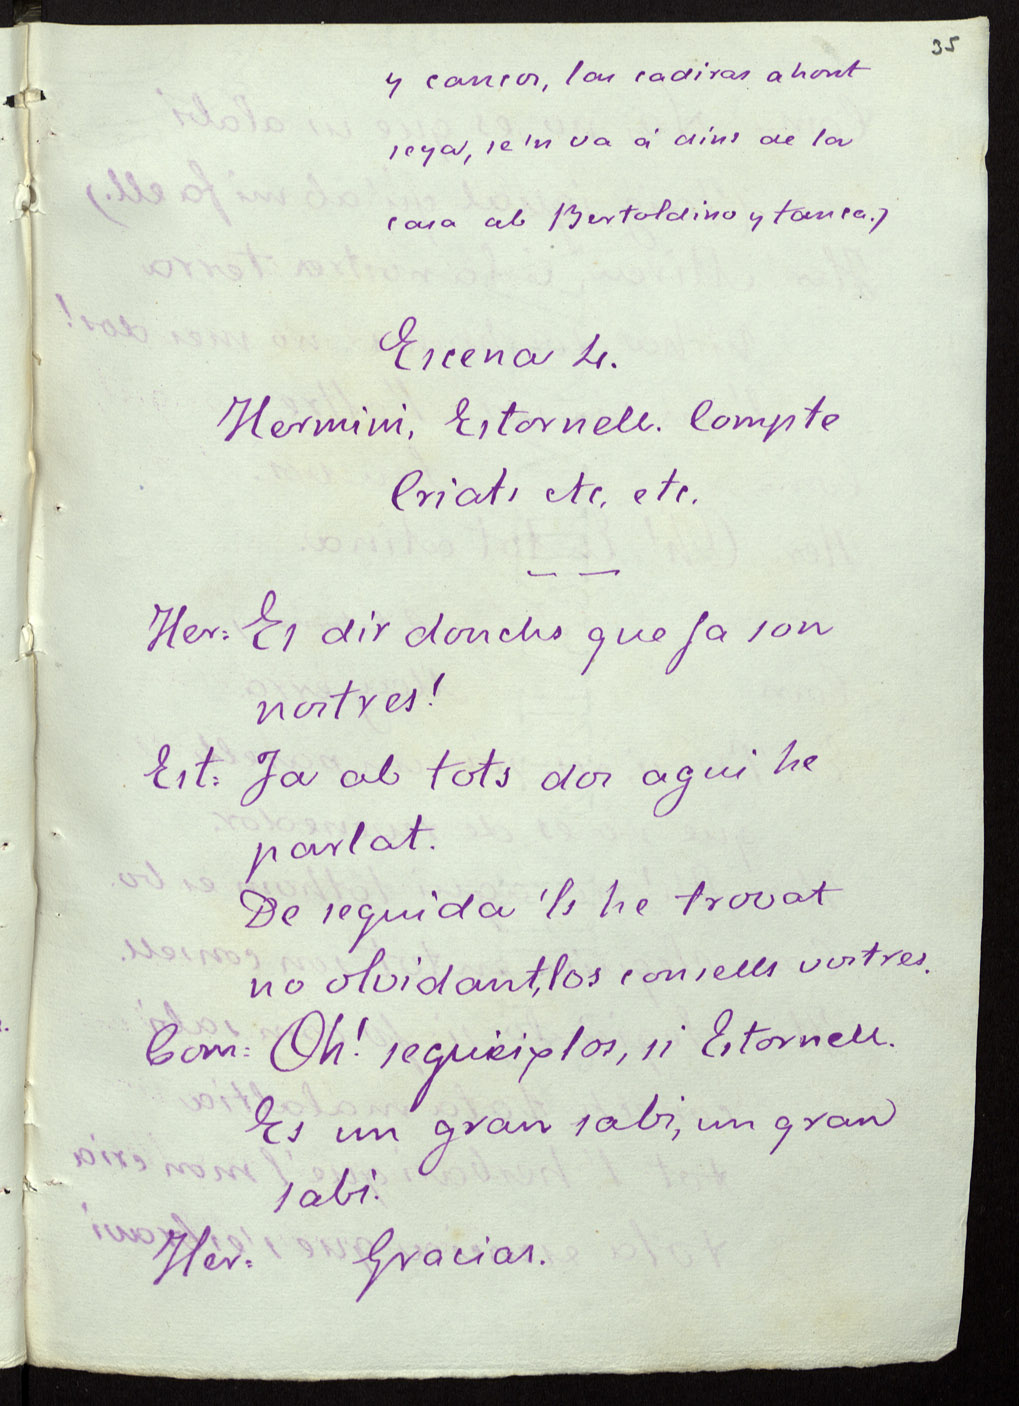 35
y cancos, las cadiras ahont
seya, se'n va á dins de la
casa ab Bertoldino y tanca.)
Escena 4.
Hermini, Estornell. Compte
Criats etc. etc.
Her: Es dir donchs que ja son
nostres!
Est: Ja ab tots dos aqui he
parlat.
De seguida 'ls he trovat
no olvidant,los consells vostres.
Com: Oh! seguiu los, si Estornell.
Es un gran sabi, un gran
sabi.
Her: Gracias.